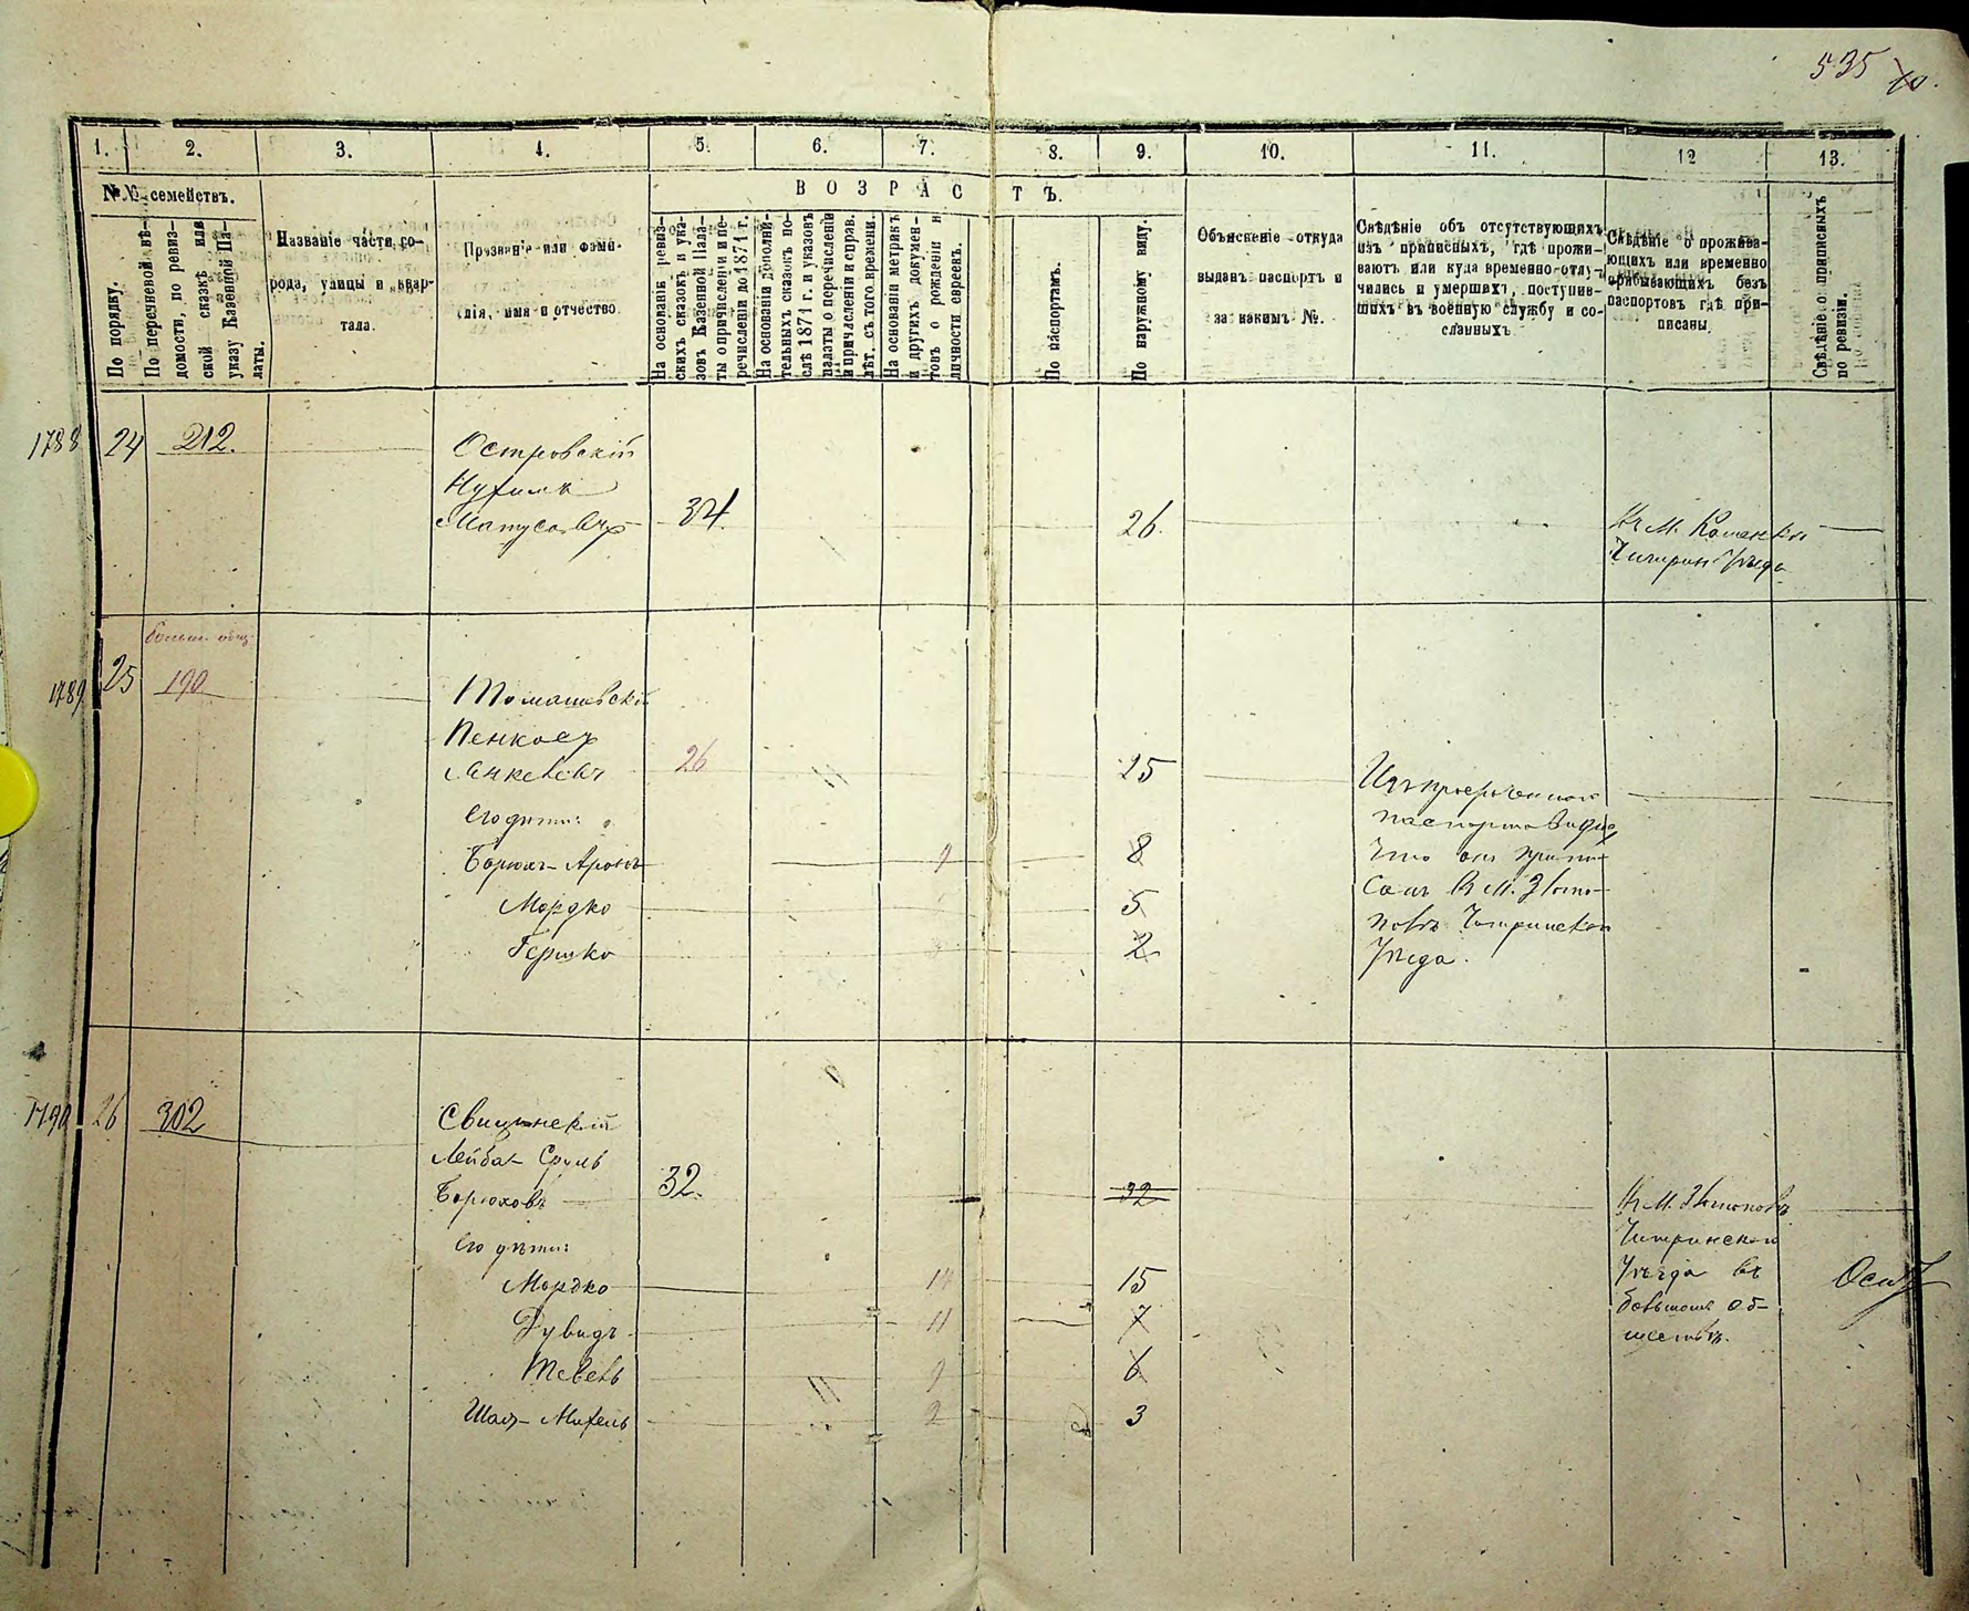 535 10.
1. 2. 3. 4. 5. 6. 7. 8. 9. 10. 11. 12 13.
№№ семействъ.
ВОЗРАСТЪ.
По порядку.
По перечневой вѣ-
домости, по ревиз-
ской сказкѣ или
указу Казенной Па-
латы.
Названіе части го-
рода, улицы и квар-
тала.
Прозваніе или фами-
лія, имя и отчество.
На основаніи ревиз-
скихъ сказокъ и ука-
зовъ Казенной Пала-
ты о причисленіи и пе-
речисленіи до 1871 г.
На основаніи дополни-
тельныхъ сказокъ по-
слѣ 1871 г. и указовъ
палаты о перечисленіи
и причисленіи и справ.
лѣт. съ того времени.
На основаніи метрикъ
и другихъ докумен-
товъ о рожденіи и
личности евреевъ.
По паспортамъ.
По наружному виду.
Объясненіе откуда
выданъ паспортъ и
за какимъ №.
Свѣдѣніе объ отсутствующихъ
изъ приписныхъ, гдѣ прожи-
ваютъ или куда временно отлу-
чились и умершихъ, поступив-
шихъ въ военную службу и со-
сланныхъ.
Свѣдѣніе о прожива-
ющихъ или временно
прибывающихъ безъ
паспортовъ гдѣ при-
писаны.
Свѣдѣніе о приписныхъ
по ревизіи.
1788 24 212.
Островскій
Нухимъ
34. 26.
Къ М. Каменкѣ
Чигирин. Уѣзда
1789 25 190
Томашевскій
26 25
его дѣти:
Борюхъ-Аронъ 9 8
Мордко 5
Гершко 2
паспорта видно
что онъ припи-
санъ къ М. Злато-
полѣ Чигиринскаго
Уѣзда.
1790 26 302
Лейба-Сруль
Борюховъ 32. 32
его дѣти:
Мордко 14 15
Дувидъ 11 7
Тевель 9 6
Михель 2 3
Къ М. Златополѣ
Чигиринскаго
Уѣзда въ
большомъ об-
ществѣ.